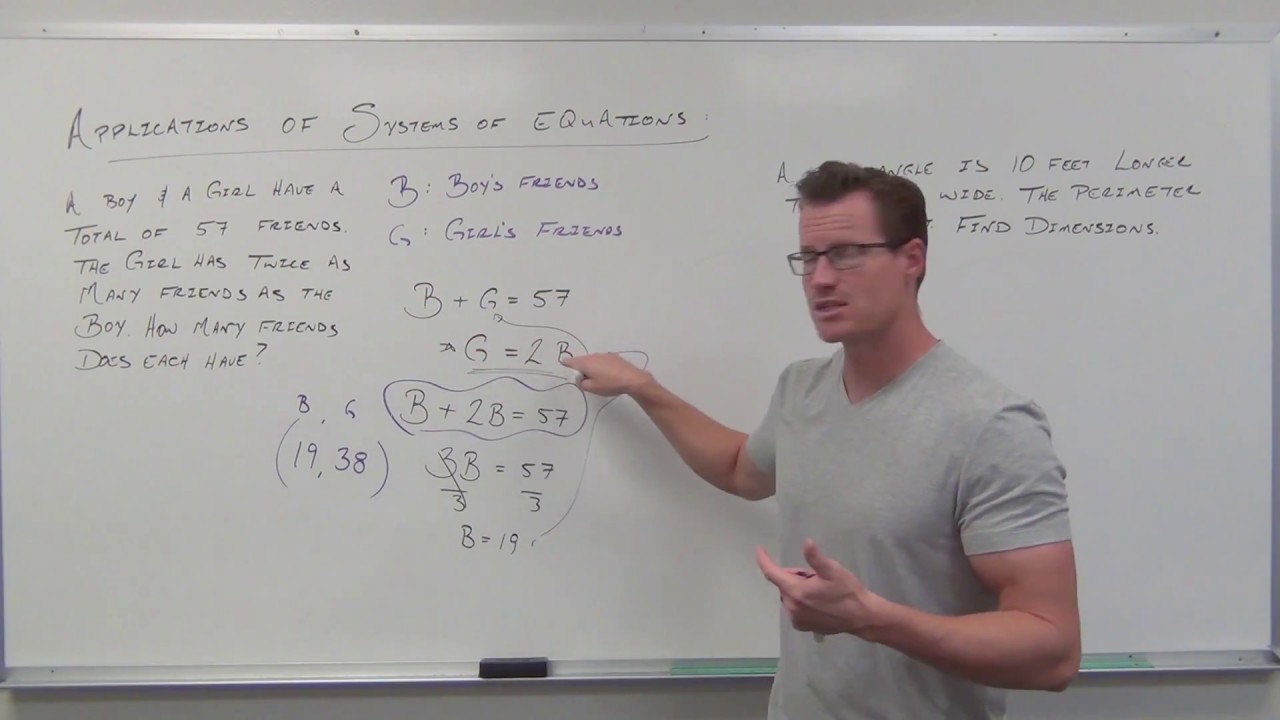 APPLICATIONS OF SYSTEMS OF EQUATIONS:
A BOY & A GIRL HAVE A
TOTAL OF 57 FRIENDS.
THE GIRL HAS TWICE AS
MANY FRIENDS AS THE
BOY. HOW MANY FRIENDS
DOES EACH HAVE?
B: BOY'S FRIENDS
G: GIRL'S FRIENDS
B + G = 57
G = 2B
B + 2B = 57
3B = 57
3 3
B = 19
B, G
(19, 38)
A IS 10 FEET LONGER
WIDE. THE PERIMETER
FIND DIMENSIONS.